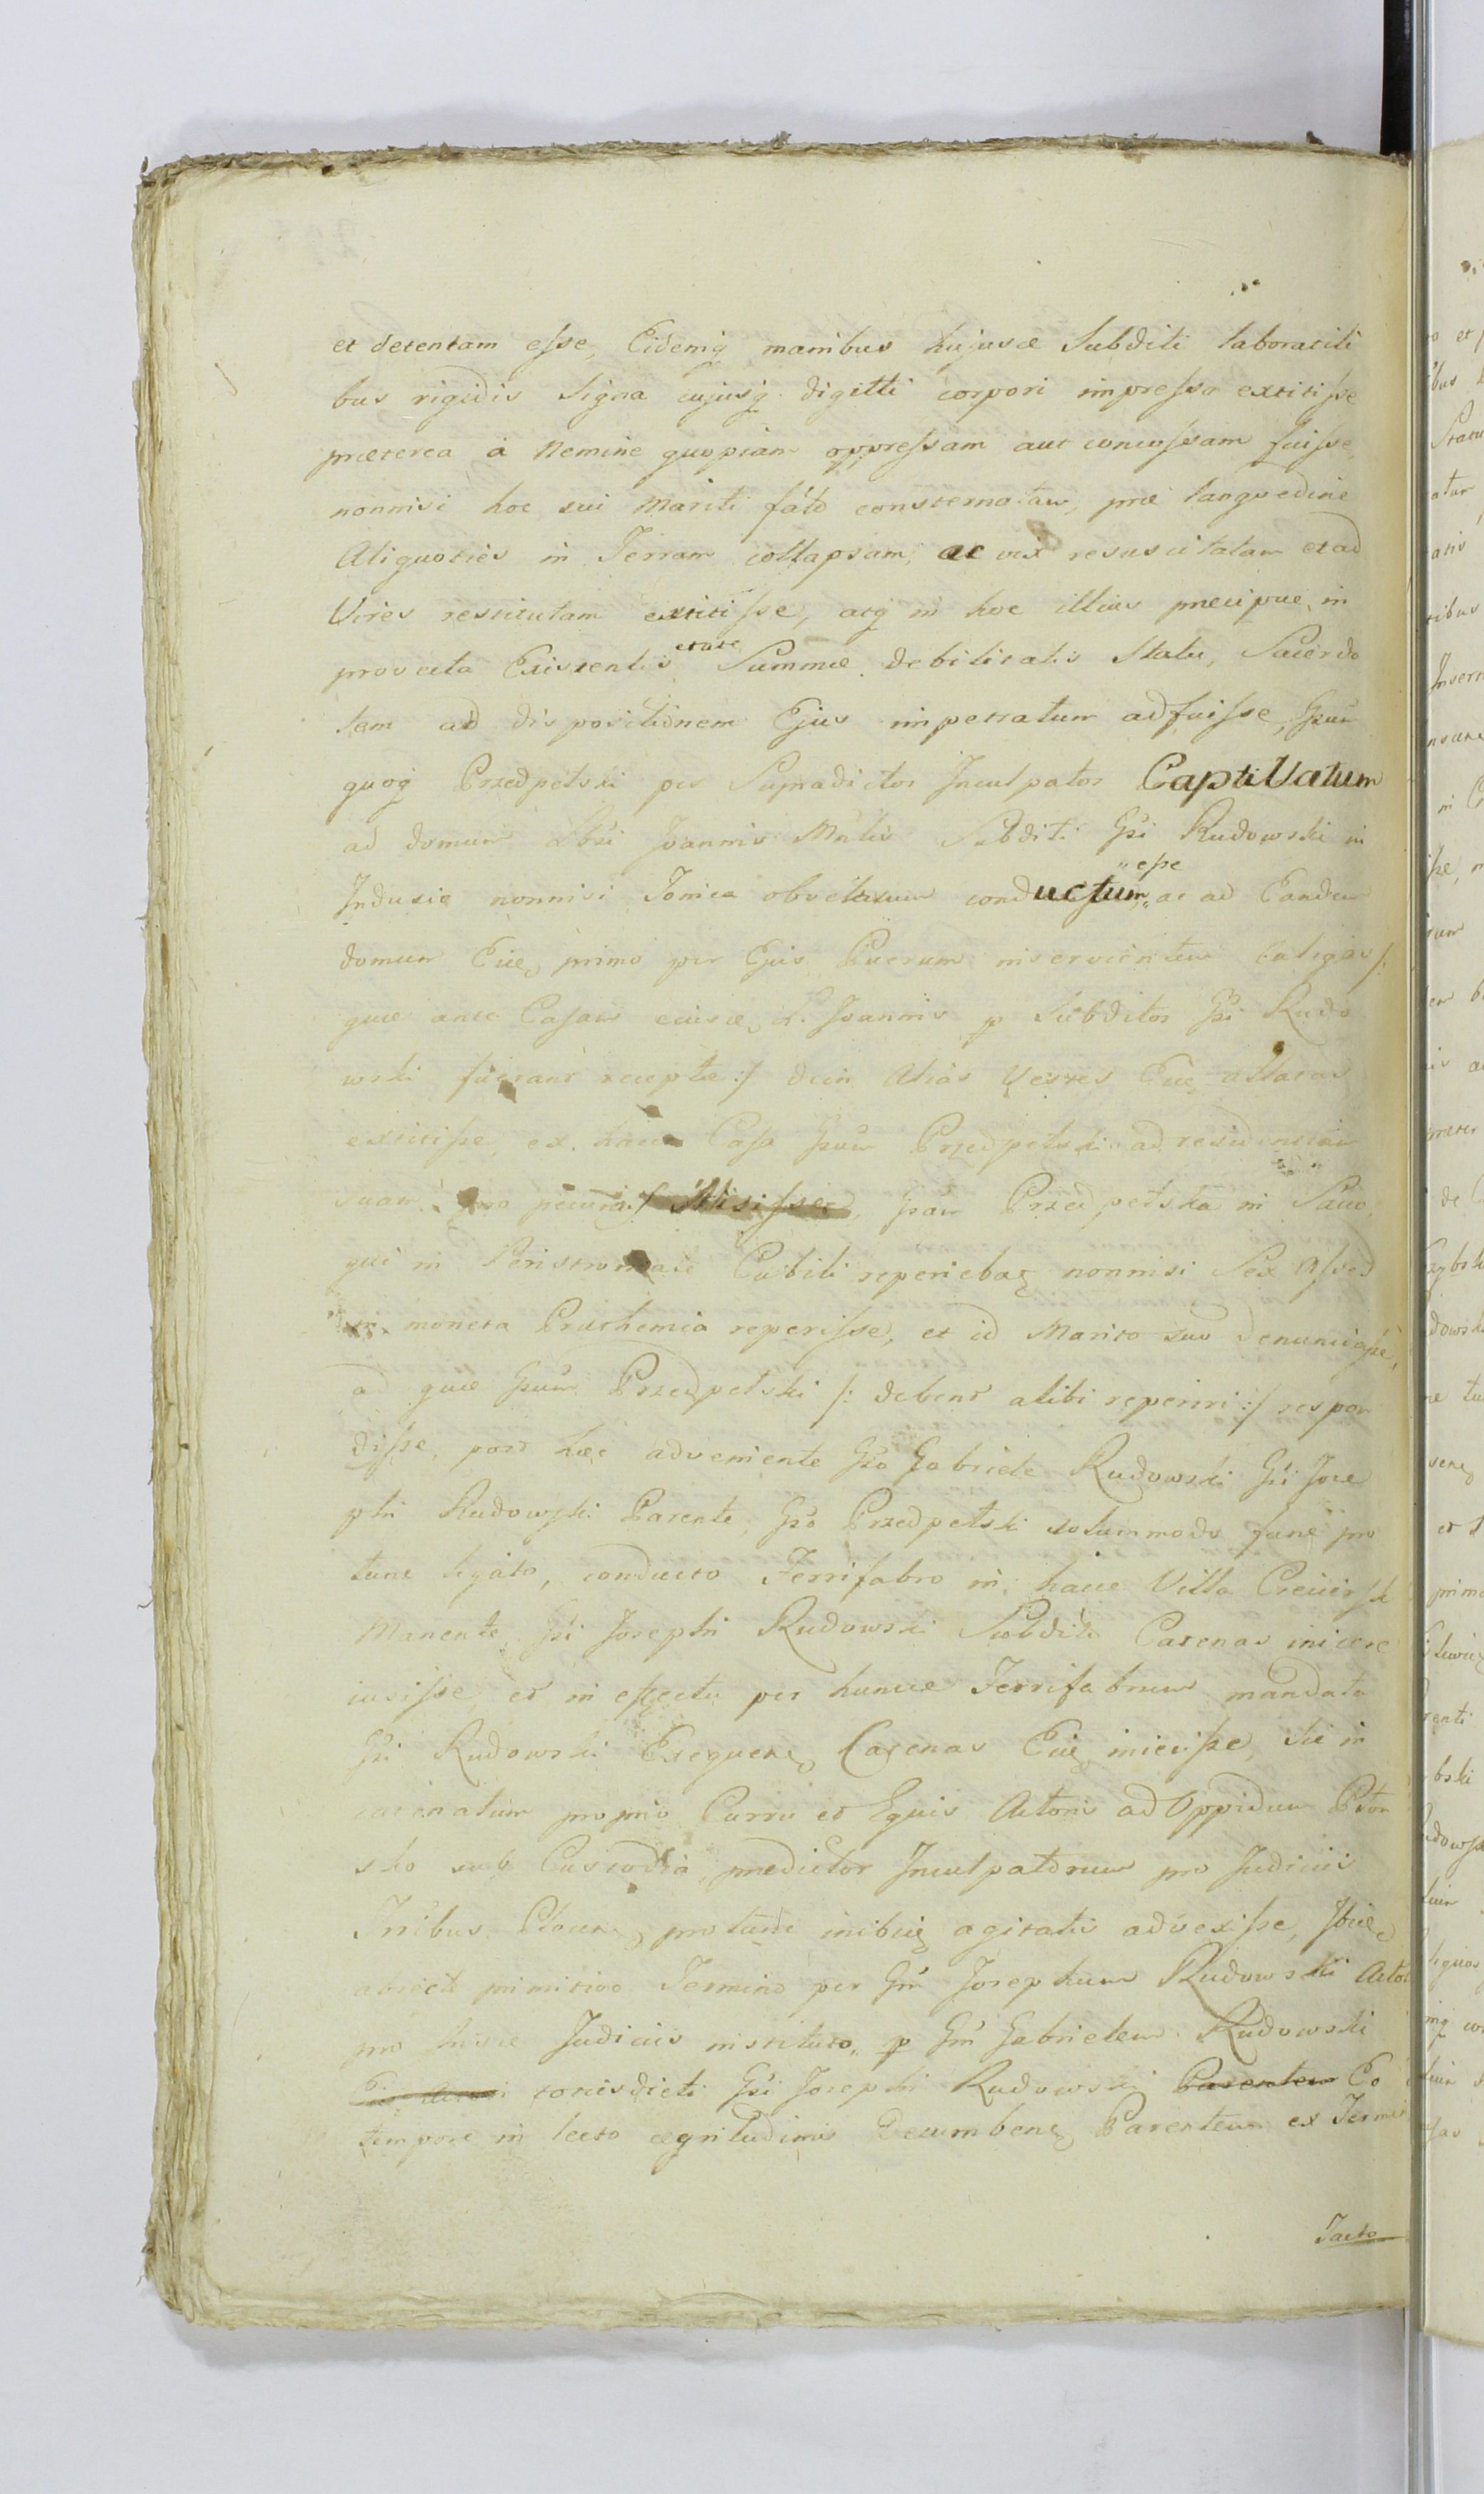 et detentam esse, Eidemq manibus hujusce Subditi laboratili
bus rigidis Signa cujusq digitti corpori impressa extitisse
præterea á Nemine quopiam oppressam aut concussam fuisse,
nonnisi hoc sui Mariti fátó consternatam, præ langvedine
Aliquoties in Terram collapsam, ac vix resuscitatam et ad
Vires restitutam extitisse, atq in hoc illius præcipue, in
provecta Existentis etate Summæ debilitatis Statu, Sacerdo
tem ad dispositionem Ejus impetratum adfuisse, Gsum
quoq Przedpełski per Supradictos Inculpatos CaptiVatum
ad domum Lbsi Joannis Subditi Gsi Rudowski in
Indusio nonnisi Tonica obvelutum conductum, esse ac ad Eandem
domum primo per Ejus Puerum inservientem Caligas /:
quæ ante Casam L. Joannis p Subditos Gsi Rudo
wski fuerant receptæ :/ dein Alias Vestes allatas
extitisse, ex hacce Casa Gsum Przedpełski ad residentiam
suam pro pecunia Misisse, Gsam Przedpełska in Sacco,
qui in Peristromate Cubili reperiebaq nonnisi Sex
in moneta Prathemia reperisse, et id Marito suo denunciasse,
ad quæ Gsum Przedpełski /: debent alibi reperiri :/ respon
disse, post hæc adveniente Gso Gabriele Rudowski Gsi Jose
phi Rudowski Parente, Gso Przedpełski solummodo fune pro
tunc ligato, conducto Ferrifabro in hacce Villa
Manente Gsi Josephi Rudowski Subdito Catenas inicere
iusisse, et in effectu per huncce Ferrifabrum mandata
Gsi Rudowski Exequenq Catenas iniecisse, sic in
catenatum proprio Curru et Equis Actoris ad Oppidum Płon
sko sub Custodia prædictor Inculpatorum pro Judiciis
protunc inibiq agitatis advexisse,
primitivo Termino per Gm Josephum Rudowski Actor
pro hisce Judiciis instituto, p Gm Gabrielem Rudowski
toties dicti Gsi Josephi Rudowski Parentem Eo
tempore in lecto ægritudinis Decumbenq Parentem ex Termi
Tacto